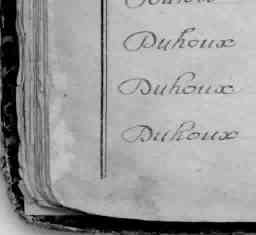 Duhoux
Duhoux
Duhoux